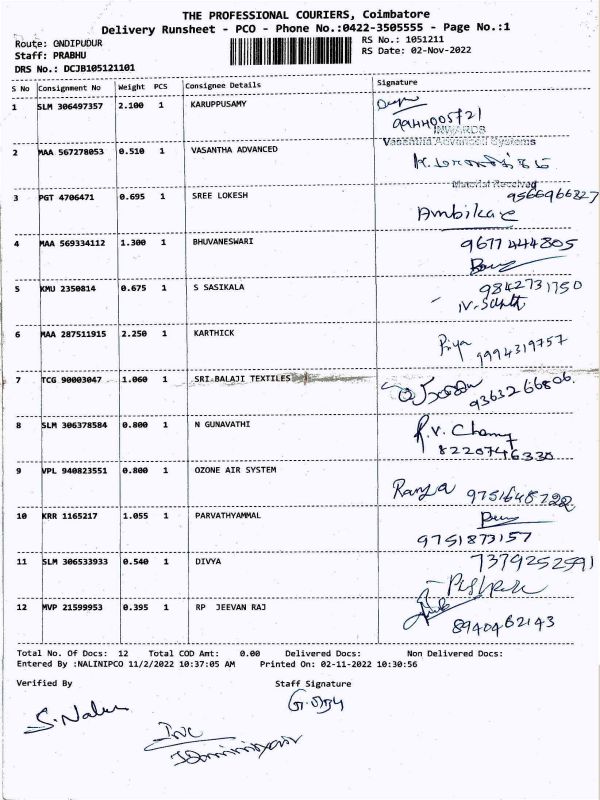 THE PROFESSIONAL COURIERS, Coimbatore
Delivery Runsheet - PCO - Phone No.:0422-3505555 - Page No.:1
Route: ONDIPUDUR RS No.: 1051211
Staff: PRABHU RS Date: 02-Nov-2022
DRS No.: DCJB105121101
S No Consignment No Weight PCS Consignee Details Signature
1 SLM 306497357 2.100 1 KARUPPUSAMY
9944005721
INWARDS
Vasantha Advanced Systems
2 MAA 567278053 0.510 1 VASANTHA ADVANCED
Material Received
9566966827
3 PGT 4706471 0.695 1 SREE LOKESH
Ambika
4 MAA 569334112 1.300 1 BHUVANESWARI 9677444805
5 KMU 2350814 0.675 1 S SASIKALA 9842731750
6 MAA 287511915 2.250 1 KARTHICK Piya 9994319757
7 TCG 90003047 1.060 1 SRI BALAJI TEXTILES 9363266806.
8 SLM 306378584 0.800 1 N GUNAVATHI
8220746330
9 VPL 940823551 0.800 1 OZONE AIR SYSTEM
Ramya
10 KRR 1165217 1.055 1 PARVATHYAMMAL
9751873157
11 SLM 306533933 0.540 1 DIVYA 7379252591
12 MVP 21599953 0.395 1 RP JEEVAN RAJ
8940462143
Total No. Of Docs: 12 Total COD Amt: 0.00 Delivered Docs: Non Delivered Docs:
Entered By :NALINIPCO 11/2/2022 10:37:05 AM Printed On: 02-11-2022 10:30:56
Verified By Staff Signature